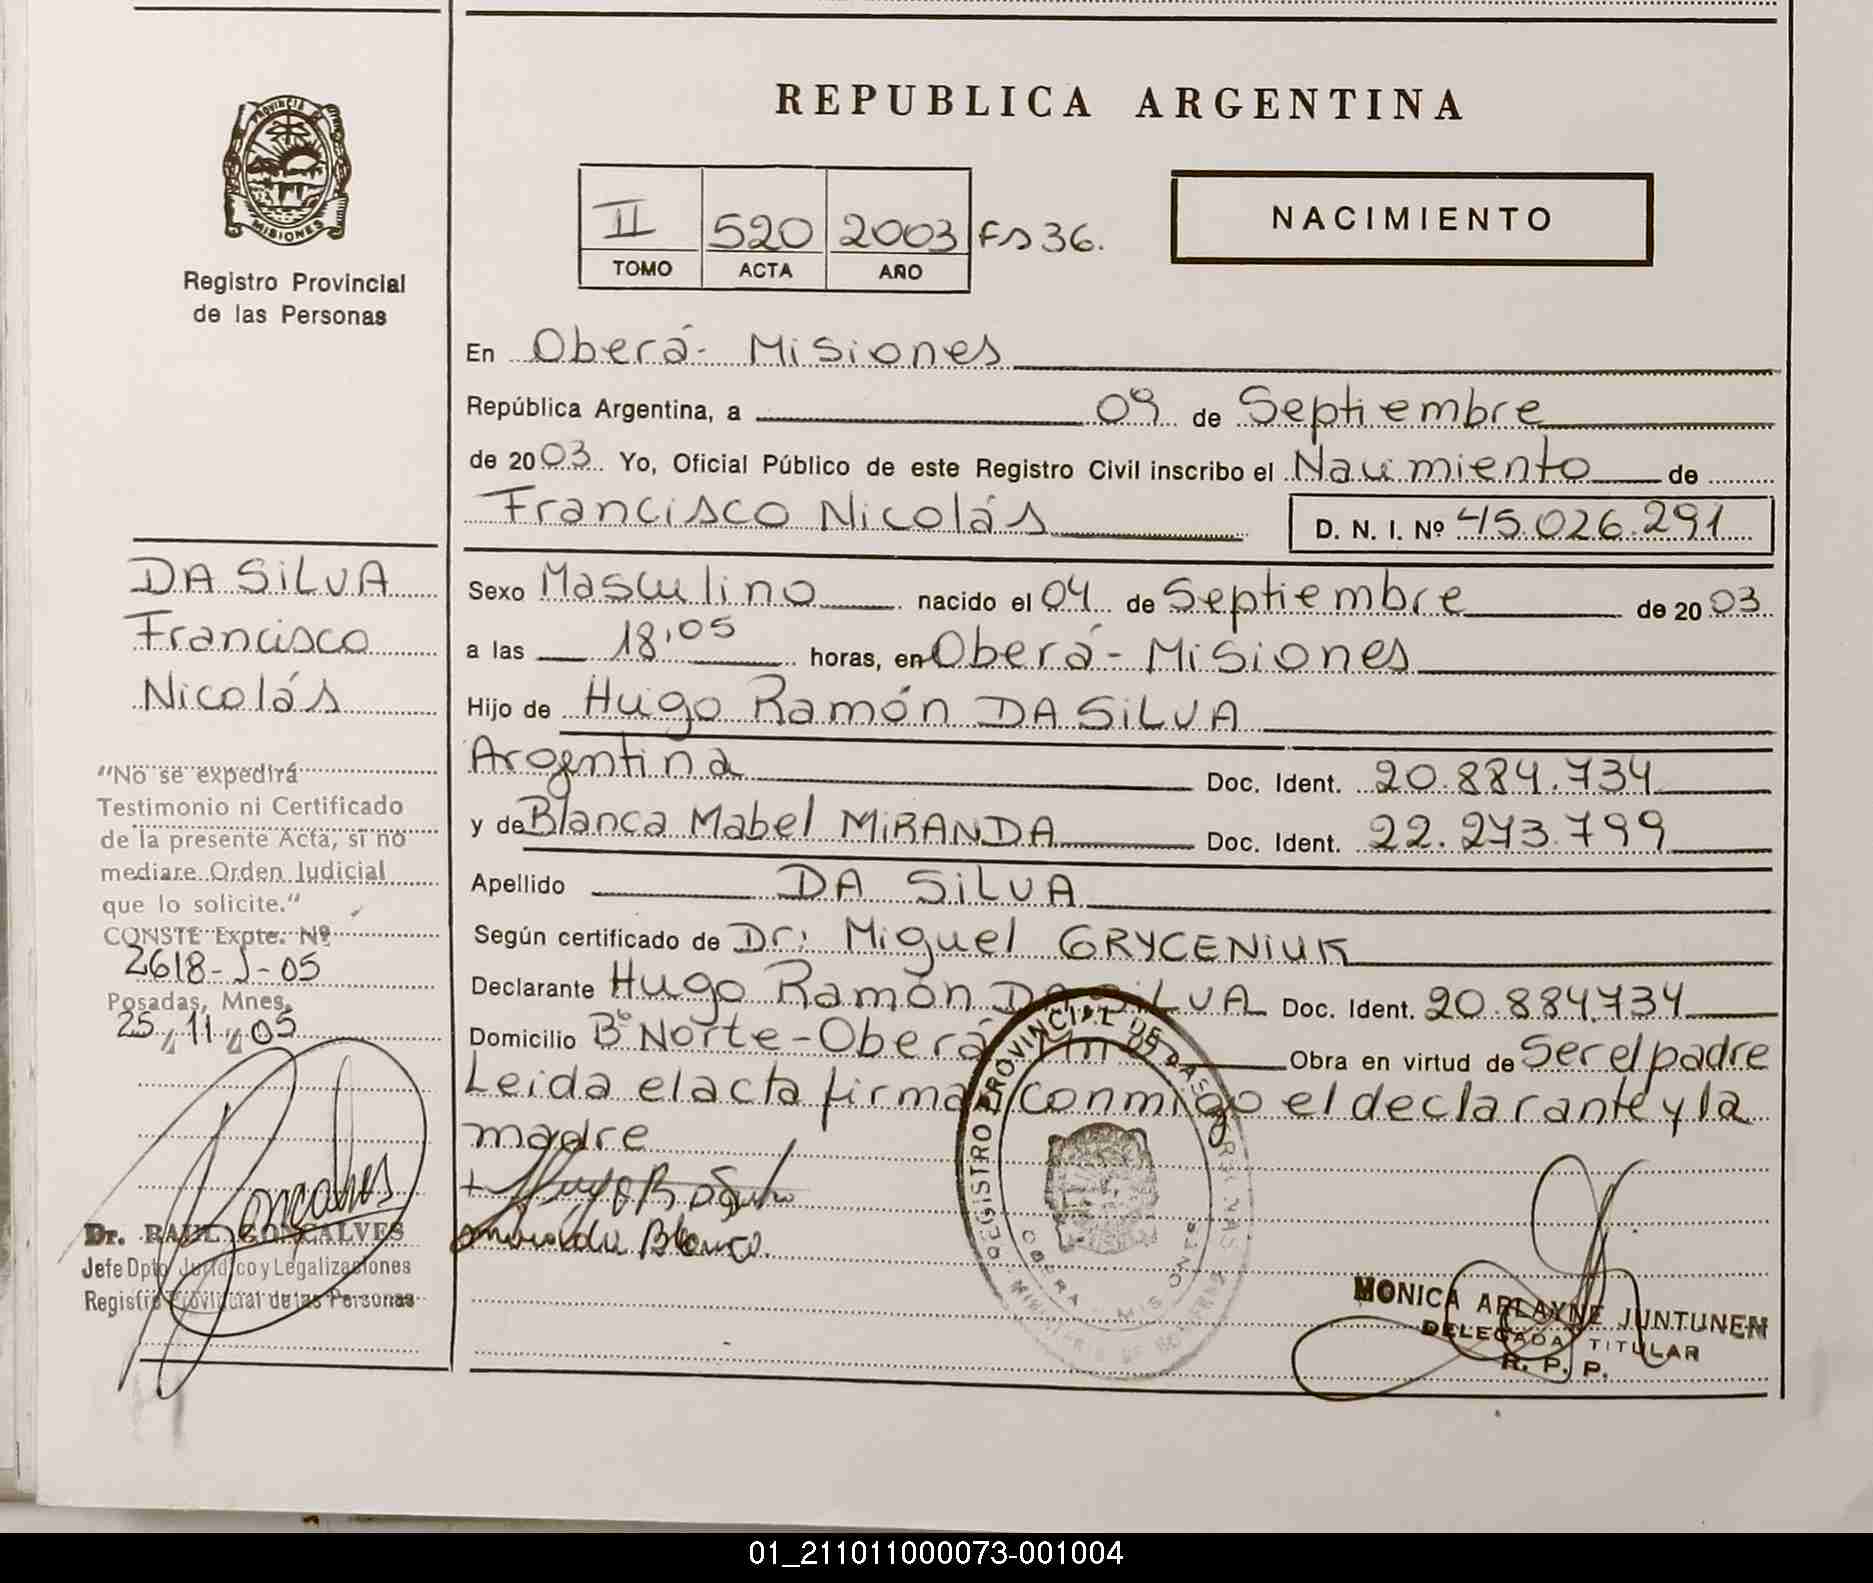 REPUBLICA ARGENTINA
PROVINCIA DE MISIONES
Registro Provincial
de las Personas
II 520 2003 Fs 36.
TOMO ACTA AÑO
NACIMIENTO
En Oberá - Misiones
República Argentina, a 09 de Septiembre
de 2003 Yo, Oficial Público de este Registro Civil inscribo el Nacimiento de
Francisco Nicolás D. N. I. Nº 45.026.291
Sexo Masculino nacido el 04 de Septiembre de 2003
a las 18,05 horas, en Oberá - Misiones
Hijo de Hugo Ramón DA SILVA
Argentina Doc. Ident. 20.884.734
y de Blanca Mabel MIRANDA Doc. Ident. 22.273.799
Apellido DA SILVA
Según certificado de Dr: Miguel GRYCENIUK
Declarante Hugo Ramón DA SILVA Doc. Ident. 20.884.734
Domicilio Bº Norte - Oberá Obra en virtud de Ser el padre
Leida el acta firman conmigo el declarante y la
madre
DA SILVA
Francisco
Nicolás
"No se expedirá
Testimonio ni Certificado
de la presente Acta, si no
mediare Orden Judicial
que lo solicite."
CONSTE Expte. Nº
2618-J-05
Posadas, Mnes,
25 11 05
Goncalves
Dr. RAUL GONCALVES
Jefe Dpto Jurídico y Legalizaciones
Registro Provincial de las Personas
Miranda Blanca.
REGISTRO PROVINCIAL DE LAS PERSONAS
OBERA - MISIONES
MINISTERIO DE GOBIERNO
MONICA ARLAYNE JUNTUNEN
DELEGADA TITULAR
R. P. P.
01_211011000073-001004